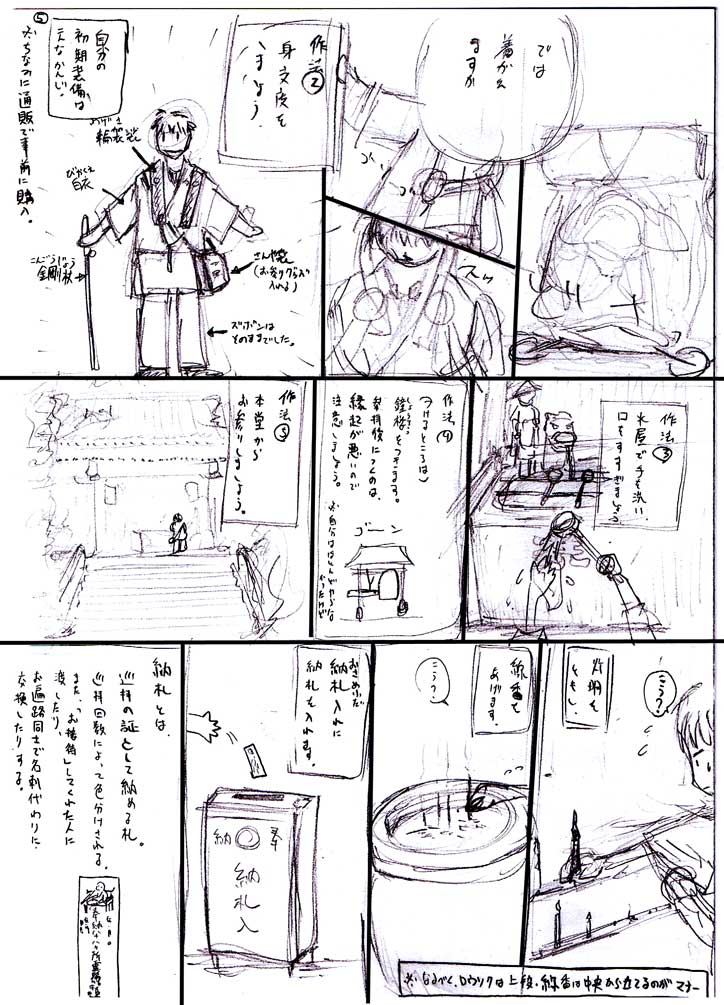 では
着がえ
ますか
作法②
身支度を
しましょう。
自分の
初期装備は
こんなかんじ。
おげさ
輪袈裟
びゃくえ
白衣
こんごうじょう
金剛杖
さんや袋
(お参りグッズ入れる)
ズボンは
そのままでした。
⑤
※ちなみに通販で事前に購入。
ゴッ
スッ
作法③
水屋で手を洗い、
口をすすぎましょう
作法④
(つけるところは)
しょうろう
鐘楼をつきます。
参拝後につくのは、
縁起が悪いので
注意しましょう。
ゴーン
作法⑤
本堂から
お参りしましょう。
灯明を
ともし、
こう?
線香を
あげます。
こう?
おさめふだ
納札入れに
納札を入れます。
奉
納
納札入
納札とは、
巡拝の証として納める札。
巡拝回数によって色分けされる。
また、「お接待」してくれた人に
渡したり、
お遍路同士で名刺代わりに
交換したりする。
※なるべく、ロウソクは上段・線香は中央から立てるのがマナー